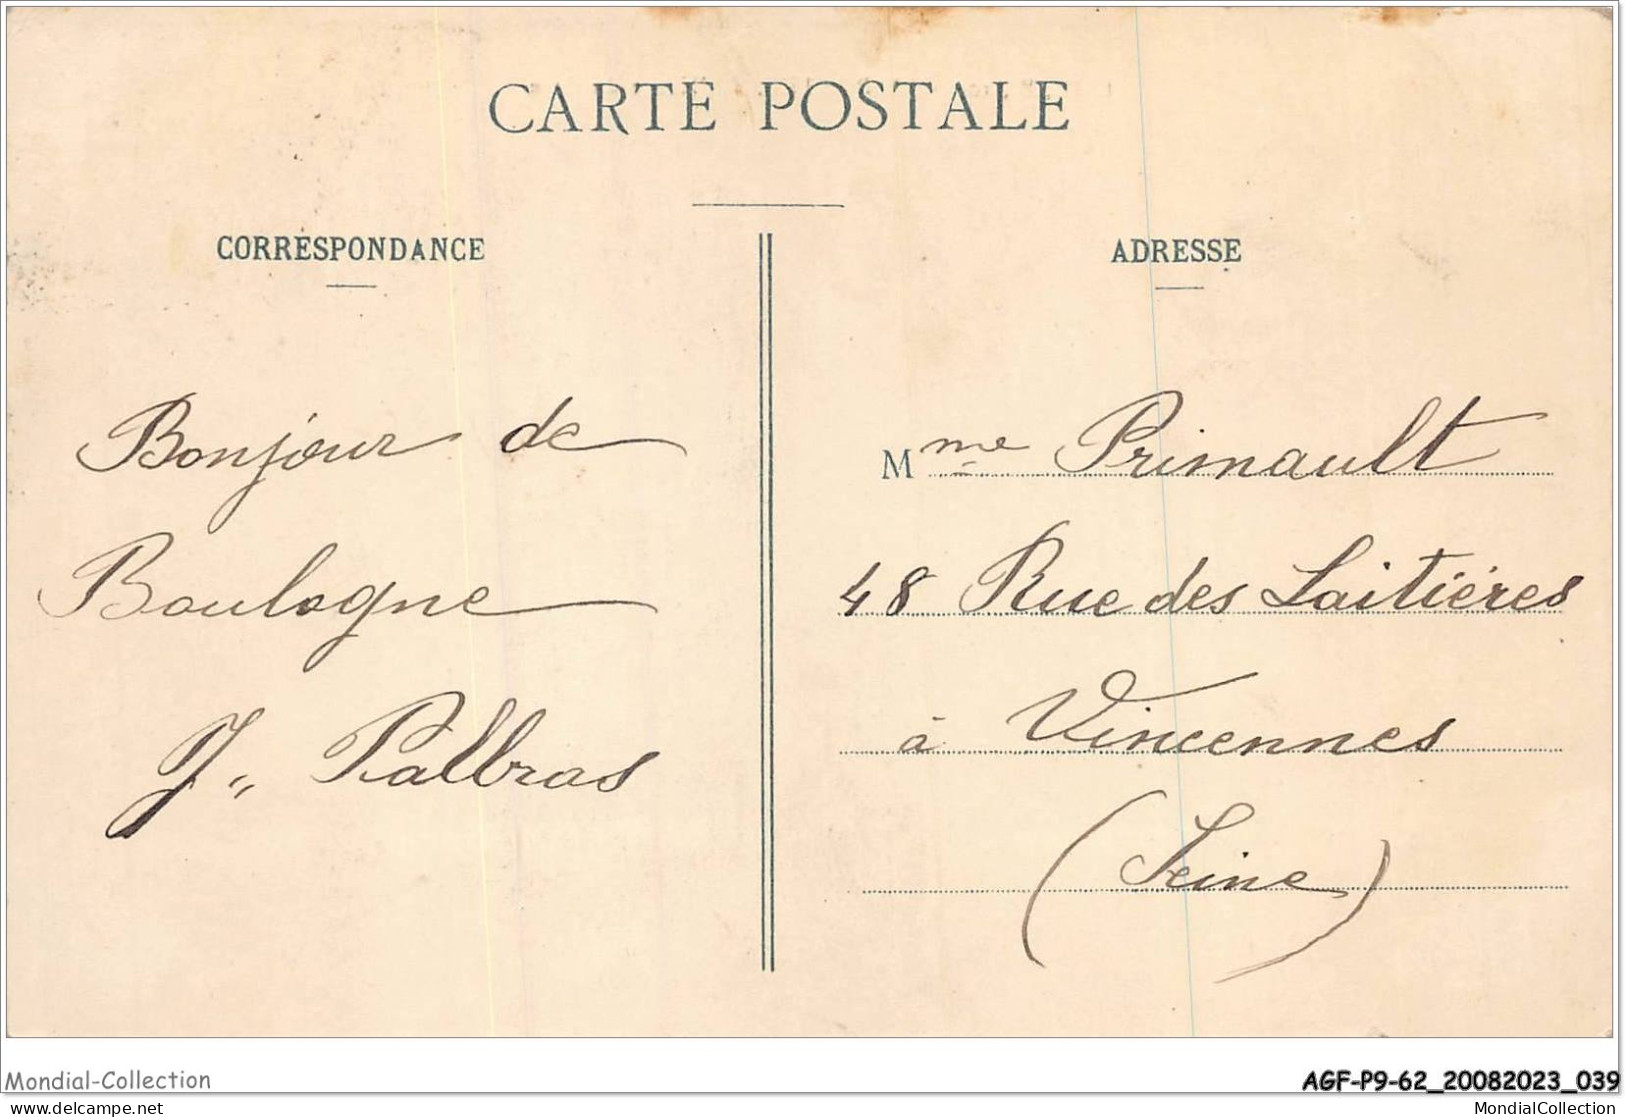 CARTE POSTALE
CORRESPONDANCE
ADRESSE
Bonjour de
Boulogne
J. Palbras
Mme Primault
48 Rue des Laitières
à Vincennes
(Seine)
Mondial-Collection
AGF-P9-62_20082023_039
delcampe.net
MondialCollection